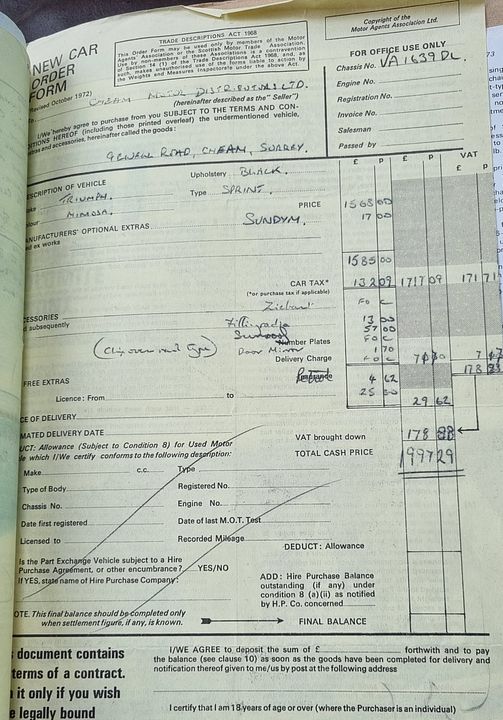 NEW CAR
ORDER
FORM
Revised October 1972)
TRADE DESCRIPTIONS ACT 1968
This Order Form may be used only by members of the Motor
Agents' Association or the Scottish Motor Trade Association.
Use by non-members of those Associations is a contravention
of Section 14 (1) of the Trade Descriptions Act 1968, and, as
such, makes unauthorised use of the forms liable to action by
the Weights and Measures Inspectorate under the above Act.
Copyright of the
Motor Agents Association Ltd.
FOR OFFICE USE ONLY
Chassis No. VA 1639 DL.
Engine No.
Registration No.
Invoice No.
Salesman
Passed by
CHEAM MOTOR DISTRIBUTORS LTD.
(hereinafter described as the "Seller")
I/We hereby agree to purchase from you SUBJECT TO THE TERMS AND CON-
DITIONS HEREOF (including those printed overleaf) the undermentioned vehicle,
extras and accessories, hereinafter called the goods:
EWELL ROAD, CHEAM, SURREY.
£ p £ p VAT
DESCRIPTION OF VEHICLE
Upholstery BLACK.
TRIUMPH. Type SPRINT.
Colour MIMOSA. PRICE 1568 00
MANUFACTURERS' OPTIONAL EXTRAS SUNDYM. 17 00
ed ex works
1585 00
CAR TAX* 132 09 1717 09 171 71
(*or purchase tax if applicable)
CESSORIES Ziebart FOC
d subsequently
13 00
57 00
Number Plates FOC
Door Mirror 1 70
Delivery Charge FOC
FREE EXTRAS 4 62
Licence: From to 25 00 29 62
CE OF DELIVERY
MATED DELIVERY DATE
VAT brought down 178
DUCT: Allowance (Subject to Condition 8) for Used Motor
le which I/We certify conforms to the following description:
TOTAL CASH PRICE 1997 29
Make c.c. Type
Type of Body Registered No.
Chassis No. Engine No.
Date first registered Date of last M.O.T. Test
Licensed to Recorded Mileage
DEDUCT: Allowance
Is the Part Exchange Vehicle subject to a Hire
Purchase Agreement, or other encumbrance? YES/NO
If YES, state name of Hire Purchase Company:
ADD: Hire Purchase Balance
outstanding (if any) under
condition 8 (a)(ii) as notified
by H.P. Co. concerned
OTE. This final balance should be completed only
when settlement figure, if any, is known.
FINAL BALANCE
document contains
terms of a contract.
it only if you wish
e legally bound
I/WE AGREE to deposit the sum of £ forthwith and to pay
the balance (see clause 10) as soon as the goods have been completed for delivery and
notification thereof given to me/us by post at the following address
I certify that I am 18 years of age or over (where the Purchaser is an individual)